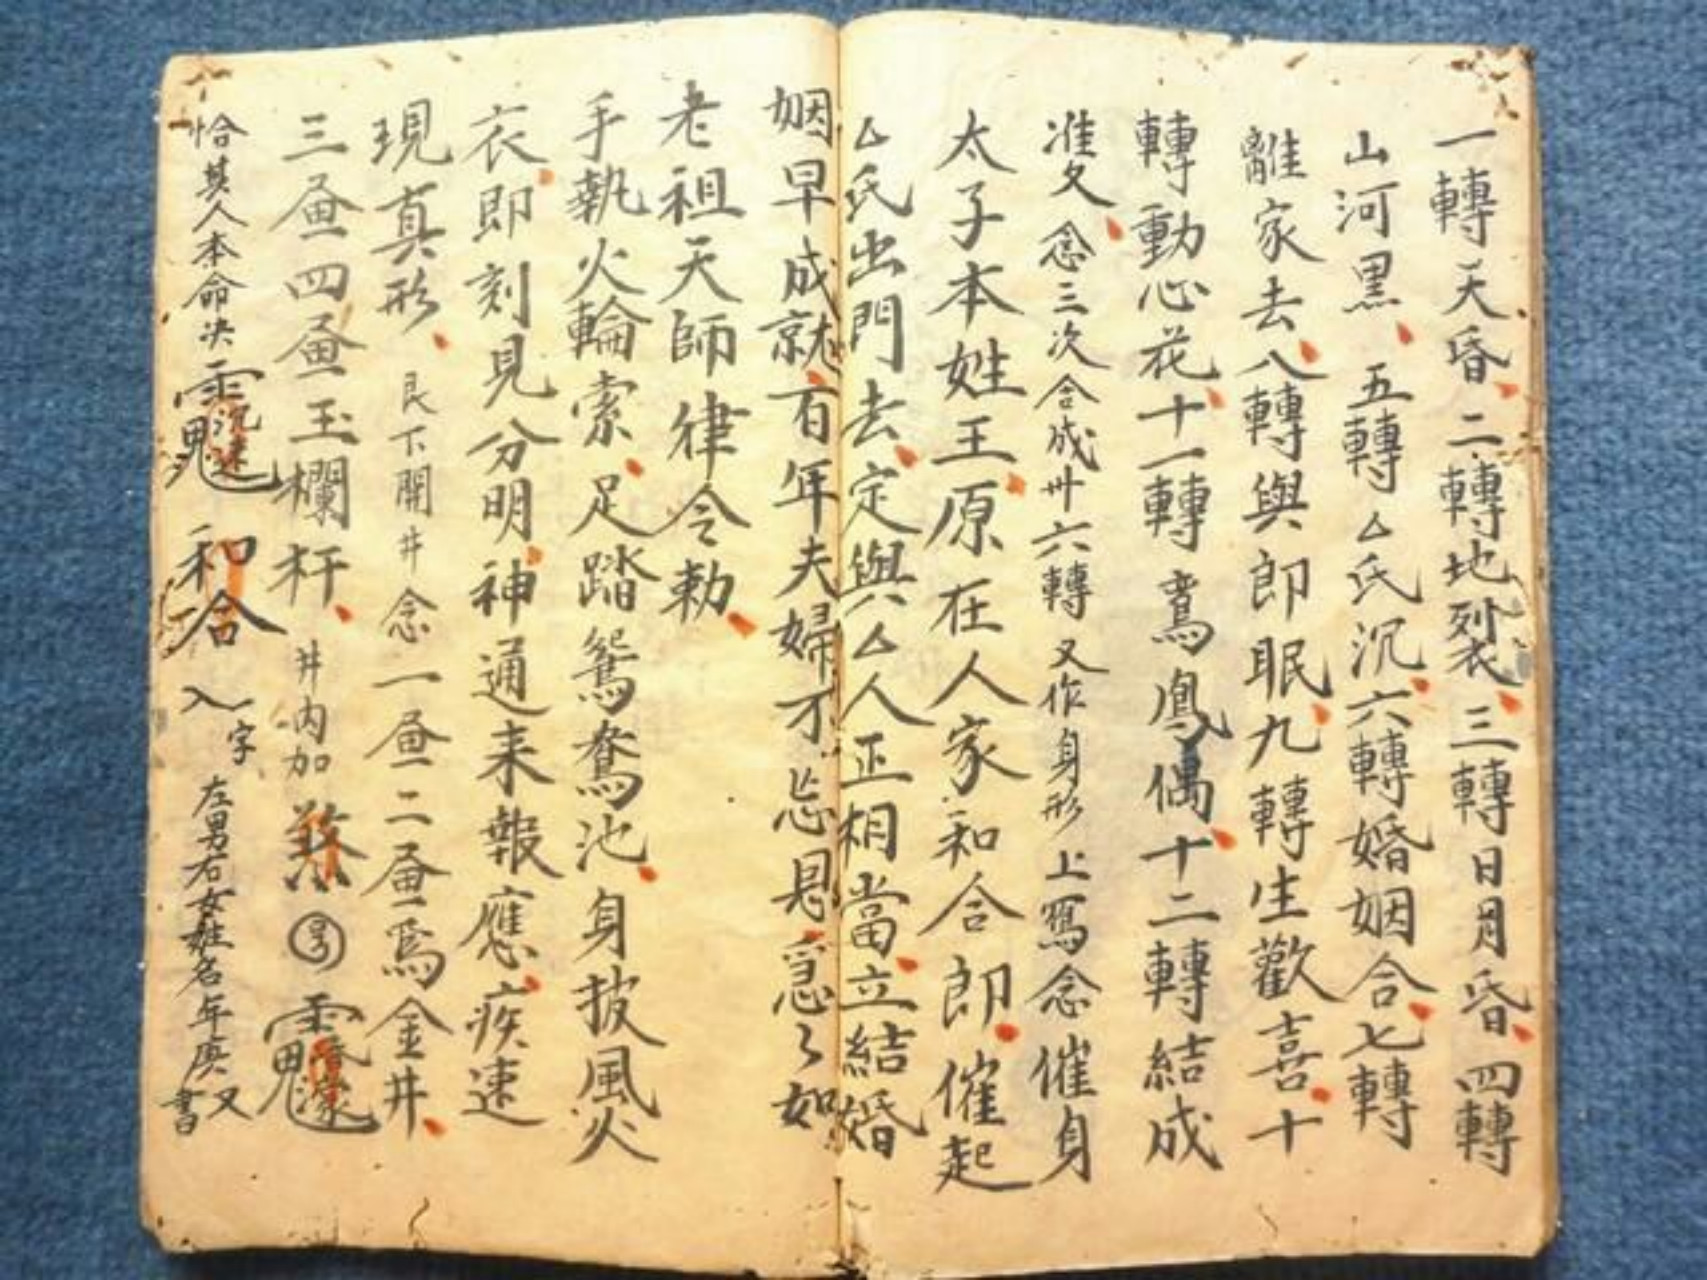 一轉天昏二轉地裂三轉日月昏四轉
山河黑五轉厶氏沉六轉婚姻合七轉
離家去八轉與郎眠九轉生歡喜十
轉動心花十一轉鸞鳳偶十二轉結成
准夂念三次合成卅六轉又作身形上写念催身
太子本姓王原在人家和合郎催起
厶氏出門去定與厶人正相當立結婚
姻早成就百年夫婦不忘恩急々如
老祖天師律令勅
手執火輪索足踏鴛鴦池身披風火
衣即刻見分明神通来報應疾速
現真形良下開井念一畫二畫為金井
三畫四畫玉欄杆井内加
恰其人本命决和合入一字左男右女姓名年庚又書